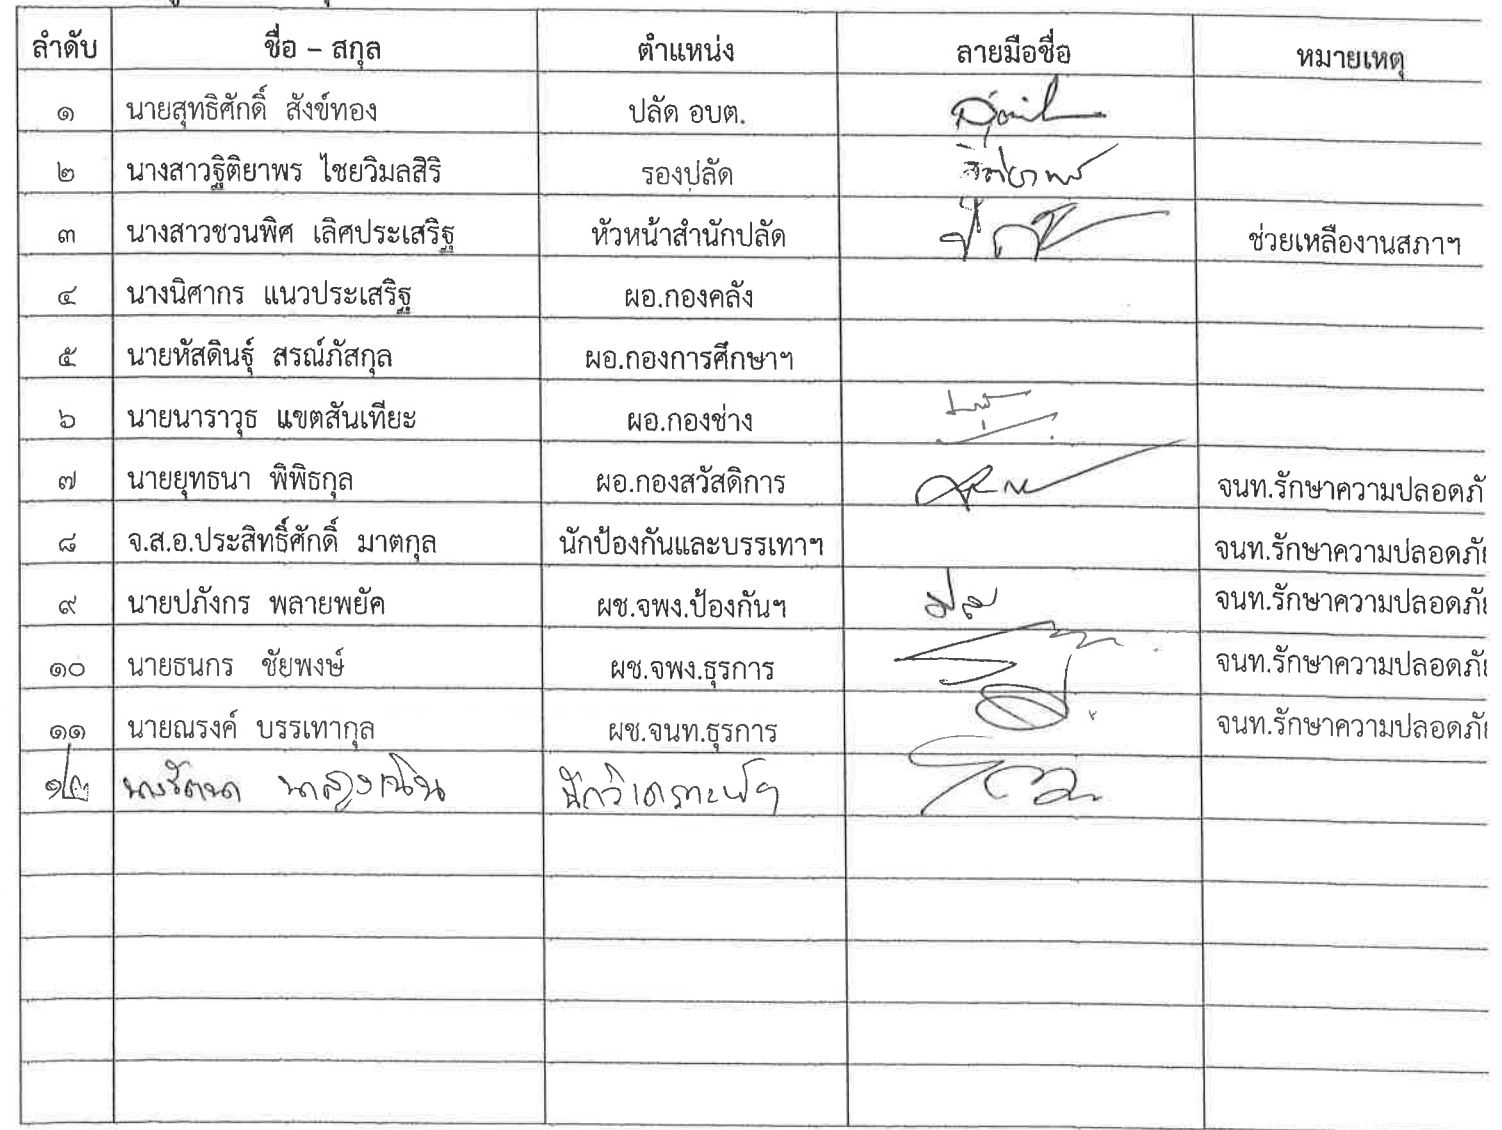 ลำดับ ชื่อ – สกุล ตำแหน่ง ลายมือชื่อ หมายเหตุ
๑ นายสุทธิศักดิ์ สังข์ทอง ปลัด อบต.
๒ นางสาวฐิติยาพร ไชยวิมลสิริ รองปลัด ฐิติยาพร
๓ นางสาวชวนพิศ เลิศประเสริฐ หัวหน้าสำนักปลัด ช่วยเหลืองานสภาฯ
๔ นางนิศากร แนวประเสริฐ ผอ.กองคลัง
๕ นายหัสดินธุ์ สรณ์ภัสกุล ผอ.กองการศึกษาฯ
๖ นายนาราวุธ แขตสันเทียะ ผอ.กองช่าง
๗ นายยุทธนา พิพิธกุล ผอ.กองสวัสดิการ จนท.รักษาความปลอดภั
๘ จ.ส.อ.ประสิทธิ์ศักดิ์ มาตกุล นักป้องกันและบรรเทาฯ จนท.รักษาความปลอดภั
๙ นายปภังกร พลายพยัค ผช.จพง.ป้องกันฯ จนท.รักษาความปลอดภั
๑๐ นายธนกร ชัยพงษ์ ผช.จพง.ธุรการ จนท.รักษาความปลอดภั
๑๑ นายณรงค์ บรรเทากุล ผช.จนท.ธุรการ จนท.รักษาความปลอดภั
๑๒ นางรัตนา นักวิเคราะห์ฯ